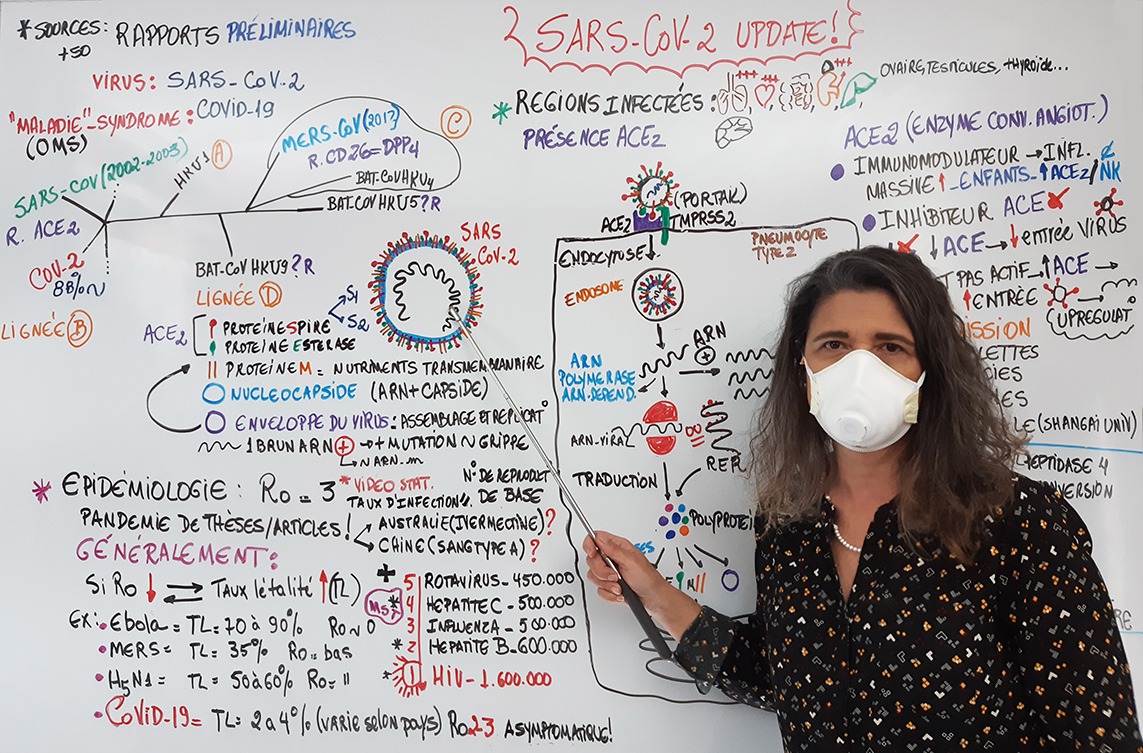 * SOURCES: RAPPORTS PRÉLIMINAIRES
+50
VIRUS: SARS-CoV-2
"MALADIE"-SYNDROME: COVID-19
(OMS)
SARS-COV (2002-2003)
HKU1 (A)
MERS-CoV (2017)
R. CD26=DPP4
(C)
BAT-COVHKU4
BAT-COVHKU5?R
R. ACE2
COV-2
88%~
BAT-COVHKU9?R
LIGNÉE (D)
LIGNÉE (B)
SARS
CoV-2
ACE2
PROTÉINE SPIRE
S1
S2
PROTEINE ESTERASE
PROTEINE M = NUTRIMENTS TRANSMEMBRANAIRE
NUCLEOCAPSIDE (ARN+CAPSIDE)
ENVELOPPE DU VIRUS: ASSEMBLAGE ET REPLICAT°
1 BRUN ARN + → + MUTATION ~ GRIPPE
→ ARN-m
* EPIDÉMIOLOGIE: Ro = 3
* VIDEO STAT.
TAUX D'INFECTION
N° DE REPRODUCT
DE BASE
PANDEMIE DE THÈSES/ARTICLES!
AUSTRALIE (IVERMECTINE)?
CHINE (SANG TYPE A)?
GÉNÉRALEMENT:
Si Ro ↓ ⇄ TAUX LÉTALITÉ ↑ (TL)
Ex: • Ebola = TL = 70 à 90% Ro ~ 0
• MERS = TL = 35% Ro = bas
• H5N1 = TL = 50 à 60% Ro = "
• COVID-19 = TL = 2 à 4% (VARIE SELON PAYS) Ro 2-3 ASYMPTOMATIQUE!
+
MST
5 ROTAVIRUS - 450.000
4 HEPATITE C - 500.000
3 INFLUENZA - 500.000
* 2 HEPATITE B - 600.000
* 1 HIV - 1.600.000
SARS-CoV-2 UPDATE!
* REGIONS INFECTÉES:
OVAIRE, TESTICULES, THYROIDE...
PRÉSENCE ACE2
(PORTAIL)
ACE2
TMPRSS2
ENDOCYTOSE
PNEUMOCYTE
TYPE 2
ENDOSOME
ARN
ARN
POLYMERASE
ARN-DEPEND.
ARN-VIRAL
TRADUCTION
RER
POLYPROTEIN
ACE2 (ENZYME CONV. ANGIOT.)
• IMMUNOMODULATEUR → INFL.
MASSIVE ↑ - ENFANTS - ↑ ACE2 / NK
• INHIBITEUR ACE
↓ ACE → ↓ entrée VIRUS
PAS ACTIF - ↑ ACE →
↑ ENTRÉE
(UPREGULAT
MISSION
LETTES
(SHANGAI UNIV)
PEPTIDASE 4